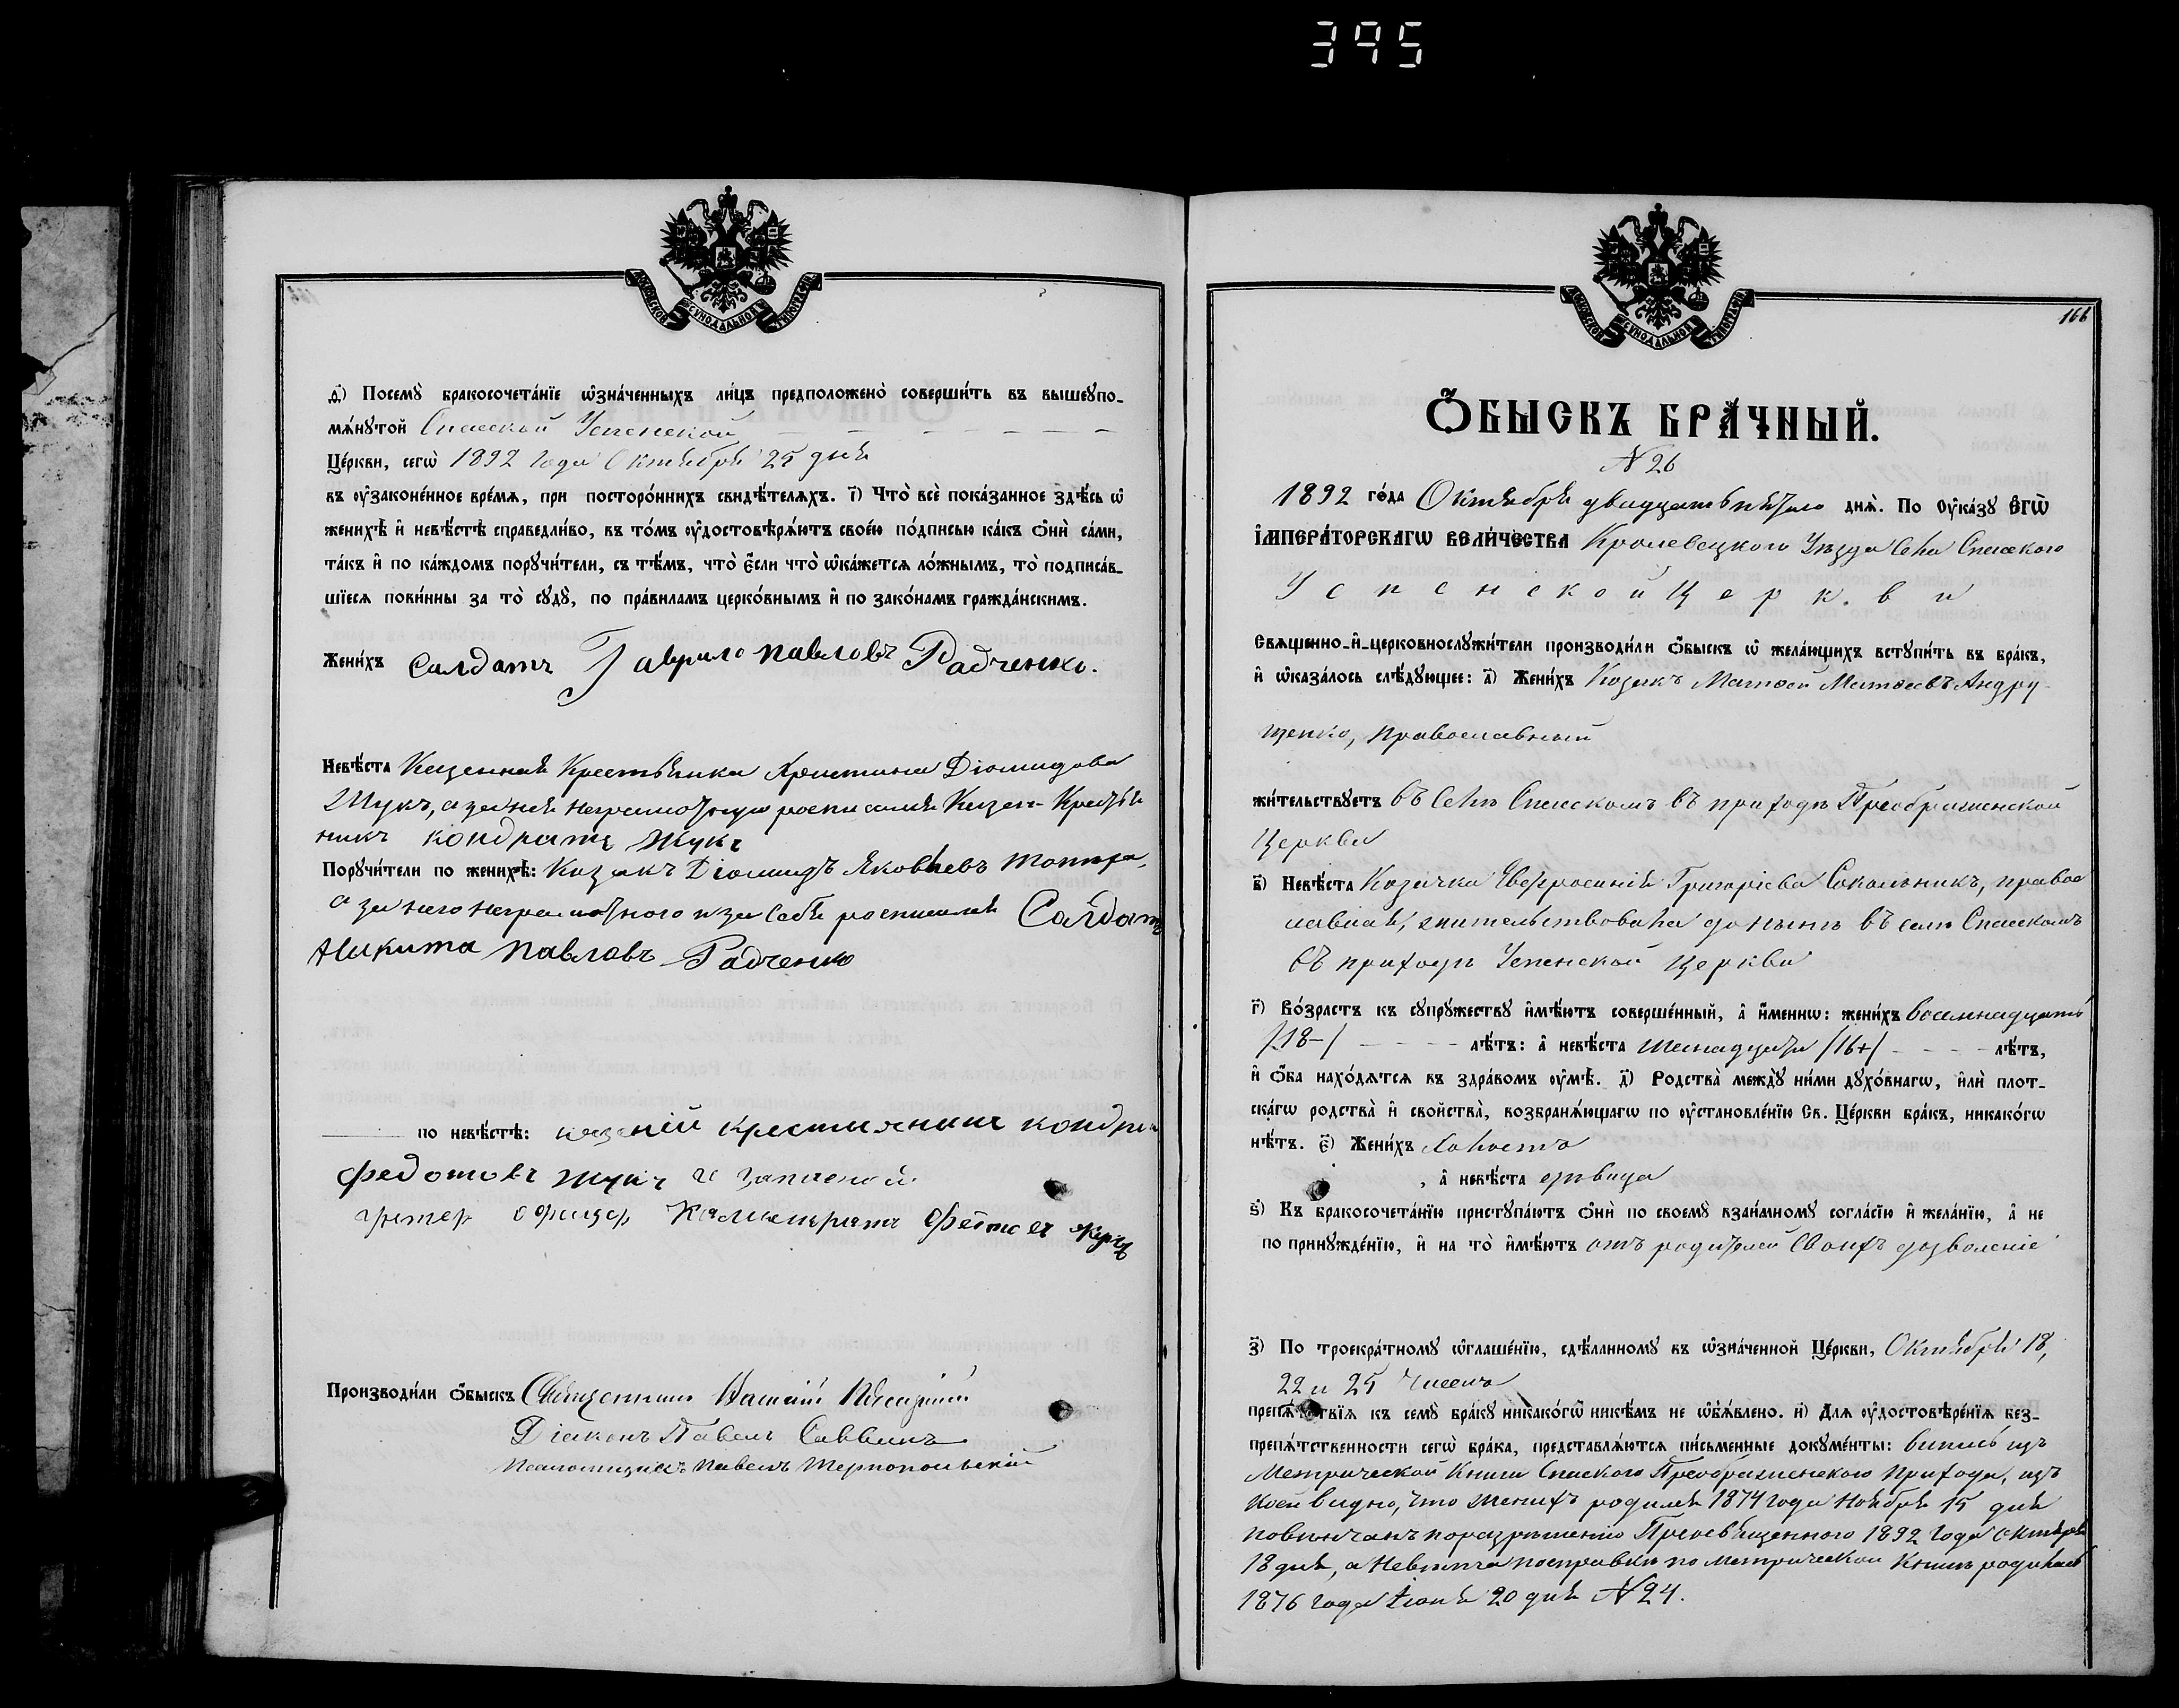 395
МОСКОВСКОЙ СѴНОДАЛЬНОЙ ТИПОГРАФІИ
д҃) Посемꙋ̀ бракосочета́нїе ѡ҆зна́ченныхъ ли́цъ предположено̀ соверши́ть въ вышеꙋпо-
мѧ́нꙋтой Спасской Успенской
Це́ркви, сегѡ̀ 1892 года Октября 25 дня
въ оу҆законе́нное вре́мѧ, при посторо́ннихъ свидѣ́телѧхъ. і҃) Что̀ всѐ пока́занное здѣ́сь ѡ҆
женихѣ̀ и҆ невѣ́стѣ справедли́во, въ то́мъ оу҆достовѣрѧ́ютъ свое́ю по́дписью ка́къ ѻ҆нѝ са́ми,
та́къ и҆ по ка́ждомъ порꙋчи́тели, съ тѣ́мъ, что̀ є҆́сли что̀ ѡ҆ка́жетсѧ ло́жнымъ, то̀ подписа́в-
шїесѧ пови́нны за то̀ сꙋдꙋ̀, по пра́виламъ церко́внымъ и҆ по зако́намъ гражда́нскимъ.
Жени́хъ Салдатъ Гаврило Павловъ Радченко.
Невѣ́ста Казенная Крестьянка Христина Діомидова
Жукъ, а за нея неграмотную росписался Казен. Крестья
никъ Кондратъ Жукъ
Порꙋчи́тели по женихѣ̀: Козакъ Діомидъ Яковлевъ
а за него неграмотного и за себя росписался Салдатъ
Никита Павловъ Радченко
по невѣ́стѣ: казеній крестиянинъ кондра
Федотовъ Жукъ и запасной
унтер офицер Жукъ
Производи́ли ѻ҆́быскъ Священникъ
Діаконъ Павелъ Саввинъ
Псаломщикъ Павелъ Тернопольскій
МОСКОВСКОЙ СѴНОДАЛЬНОЙ ТИПОГРАФІИ
166
Ѻ҆́БЫСКЪ БРА́ЧНЫЙ.
N 26
1892 го́да Октября двадцать пятого днѧ̀. По оу҆ка́зꙋ Є҆гѡ̀
І҆мпера́торскагѡ вели́чества Кролевецкого Уѣзда Села Спасского
Успенской Церкви
Свѧщенно-и҆-церковнослꙋжи́тели производи́ли ѻ҆́быскъ ѡ҆ жела́ющихъ встꙋпи́ть въ бра́къ,
и҆ ѡ҆каза́лось слѣ́дꙋющее: а҃) Жени́хъ Козакъ Матвей Матвеевъ Андру-
щенко, православный
жи́тельствꙋетъ въ Селѣ Спасскомъ въ приходѣ Преображенской
Церкви
в҃) Невѣ́ста Козачка Евфросинія Григоріева Сокольникъ, правос
лавная, жительствовала донынѣ въ селѣ Спасскомъ
въ приходѣ Успенской Церкви
г҃) Во́зрастъ къ сꙋпрꙋ́жествꙋ и҆мѣ́ютъ соверше́нный, а҆ и҆́меннѡ: жени́хъ восемнадцать
/18-/ лѣ́тъ: а҆ невѣ́ста шеснадцать /16+/ лѣ́тъ,
и҆ ѻ҆́ба нахо́дѧтсѧ въ здра́вомъ оу҆мѣ̀. д҃) Родства̀ междꙋ̀ ни́ми дꙋхо́внагѡ, и҆лѝ плот-
ска́гѡ родства̀ и҆ свойства̀, возбранѧ́ющагѡ по оу҆становле́нїю Св. Це́ркви бра́къ, никако́гѡ
нѣ́тъ. є҃) Жени́хъ Холостъ
, а҆ невѣ́ста дѣвица
ѕ҃) Къ бракосочета́нїю пристꙋпа́ютъ ѻ҆нѝ по своемꙋ̀ взаи́мномꙋ согла́сїю и҆ жела́нїю, а҆ не
по принꙋжде́нїю, и҆ на то̀ и҆мѣ́ютъ отъ родителей своихъ дозволеніе
з҃) По троекра́тномꙋ ѡ҆глаше́нїю, сдѣ́ланномꙋ въ ѡ҆зна́ченной Це́ркви, Октября 18,
22 и 25 числа
препѧ́тствїѧ къ семꙋ̀ бра́кꙋ никако́гѡ никѣ́мъ не ѡ҆б̾ѧ́влено. и҃) Длѧ оу҆достовѣре́нїѧ без-
препѧ́тственности сегѡ̀ бра́ка, представлѧ́ютсѧ пи́сьменные докꙋме́нты: выпись изъ
Метрической Книги Спаского Преображенского прихода, изъ
коей видно, что женихъ родился 1874 года Ноября 15 дня
повѣнчанъ по разрѣшенію Преосвященного 1892 года Октября
18 дня, а Невѣста по справкѣ по метрической Книгѣ родилась
1876 года Іюня 20 дня N 24.